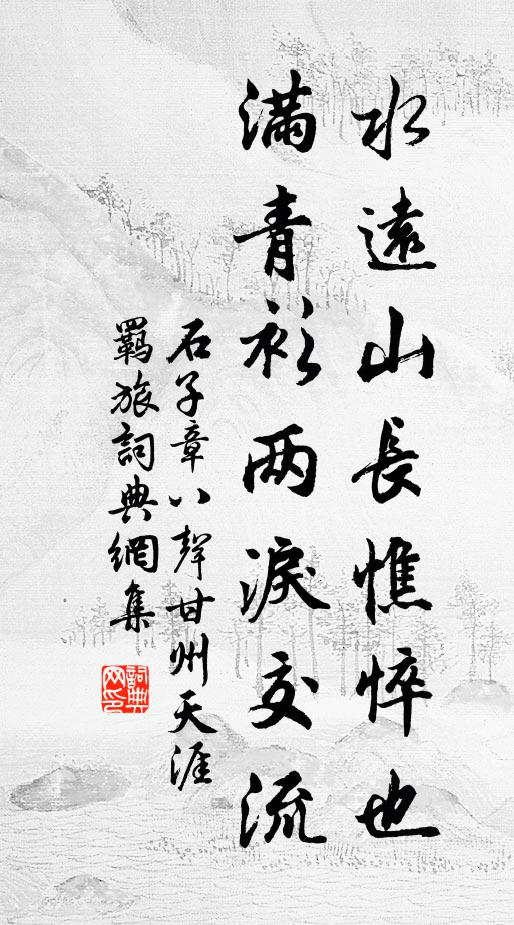 水遠山長憔悴也
滿青衫两淚交流
石子章八聲甘州天涯
羈旅詞典網集
詞典
网印